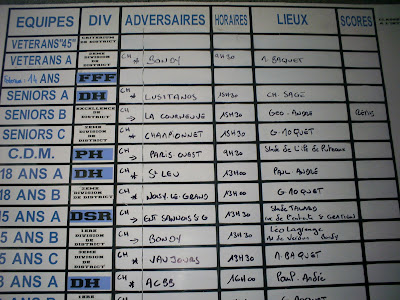 EQUIPES DIV ADVERSAIRES HORAIRES LIEUX SCORES
VETERANS"45" CRITERIUM DE DISTRICT
VETERANS A 2EME DIVISION DE DISTRICT CH * BONDY 9H30 A. BAQUET
14 ANS FFF
SENIORS A DH CH * LUSITANOS 15H30 CH. SAGE
SENIORS B EXCELLENCE DE DISTRICT CH → LA COURNEUVE 15H30 GEO-ANDRE
SENIORS C 2EME DIVISION DE DISTRICT CH * CHAMPIONNET 15H30 G MOQUET
C.D.M. PH CH → PARIS OUEST 9H30 Stade de L'île de Puteaux
18 ANS A DH CH * ST LEU 13H00 PAUL ANDRE
18 ANS B 2EME DIVISION DE DISTRICT CH * NOISY-LE-GRAND 13H00 G MOQUET
15 ANS A DSR CH → SANNOIS S G 13H30 Stade
15 ANS B 1ERE DIVISION DE DISTRICT CH → BONDY 13H30 Léo Lagrange
15 ANS C DIVISION DE DISTRICT CH * VAUJOURS 13H30 A. BAQUET
ANS A DH CH * ACBB 16H00 Paul-André